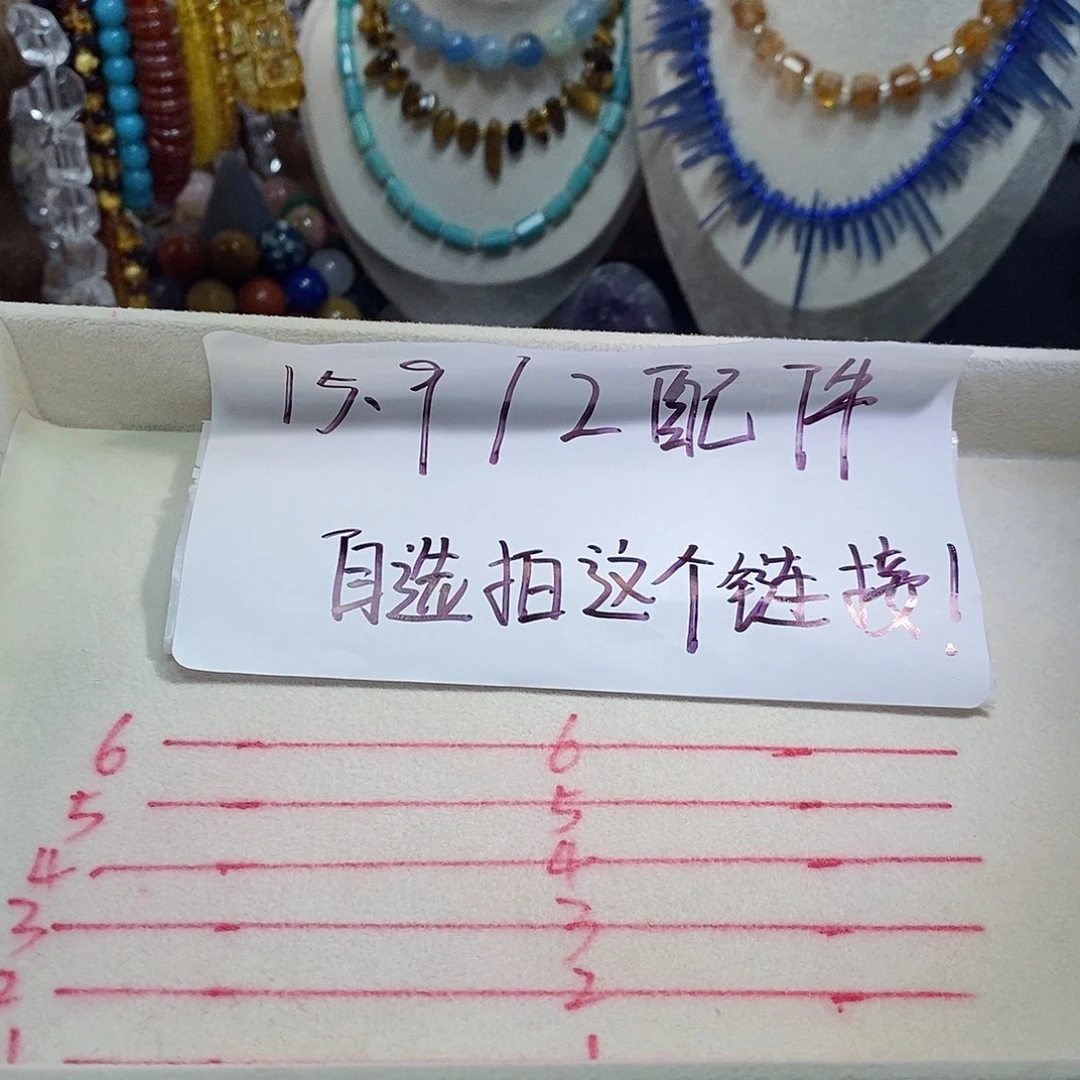 15.9/2配件
自选拍这个链接!
6 6
5 5
4 4
3 3
2 2
1 1